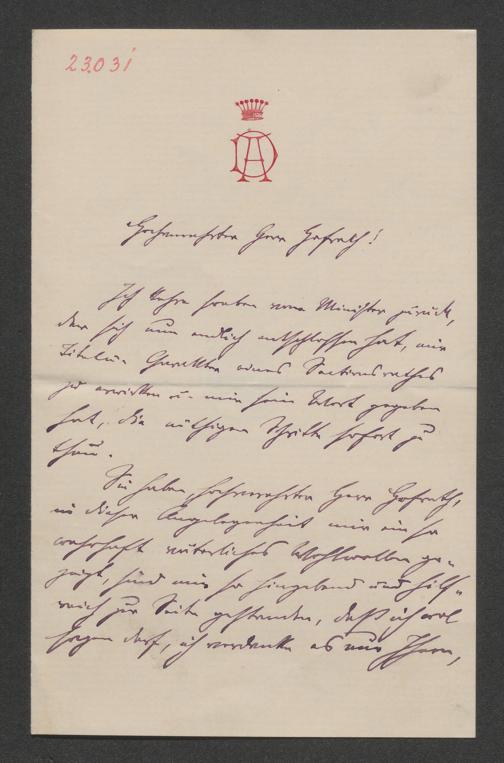 23031
DA
Hochverehrter Herr Hofrath!
Ich kehre soeben vom Minister zurück,
der sich nun endlich entschlossen hat, mir
Titel u. Charakter eines Sectionsrathes
zu erwirken u. mir sein Wort gegeben
hat, die nöthigen Schritte sofort zu
thun.
Sie haben, hochverehrter Herr Hofrath,
in dieser Angelegenheit mir ein so
wahrhaft väterliches Wohlwollen ge-
zeigt, sind mir so hingebend und hilf-
reich zur Seite gestanden, daß ich wol
sagen darf, ich verdanke es nur Ihnen,